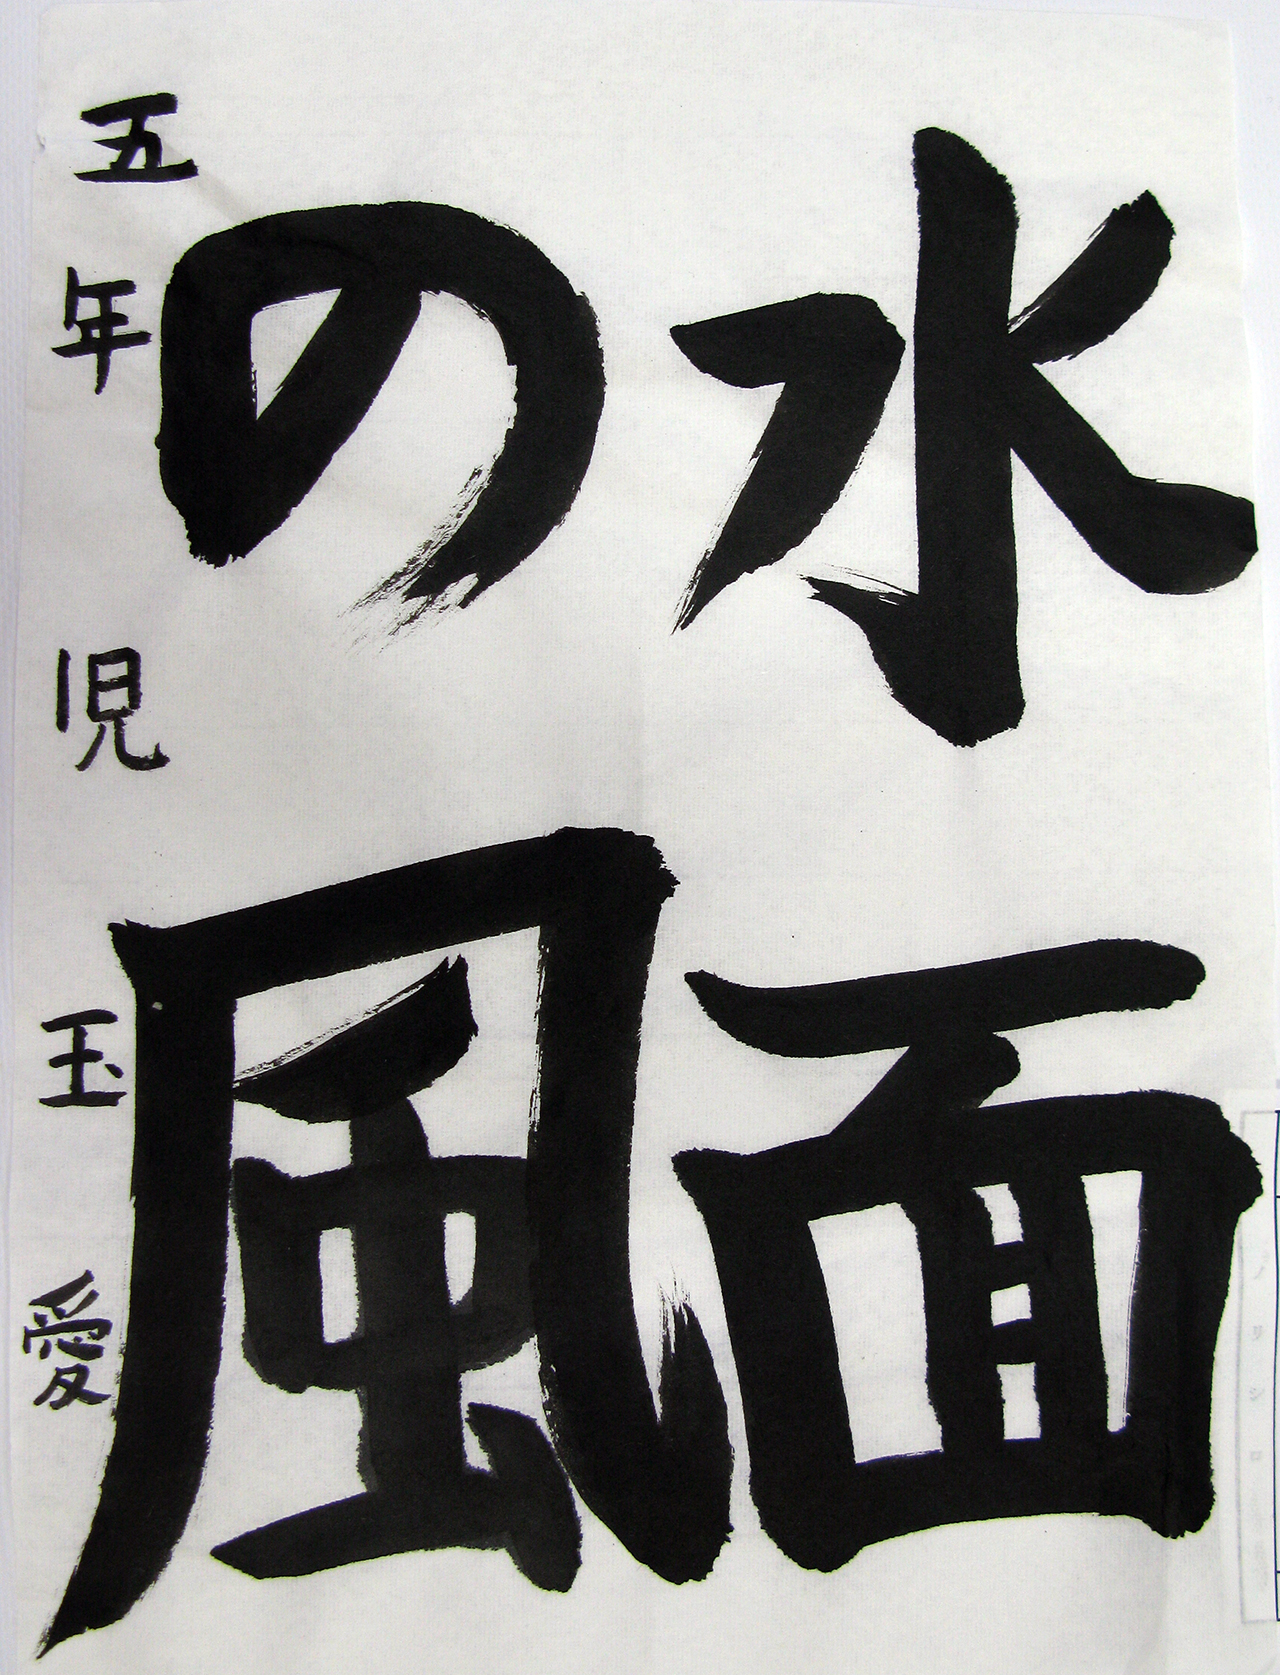 水面
の風
五年 児玉 愛